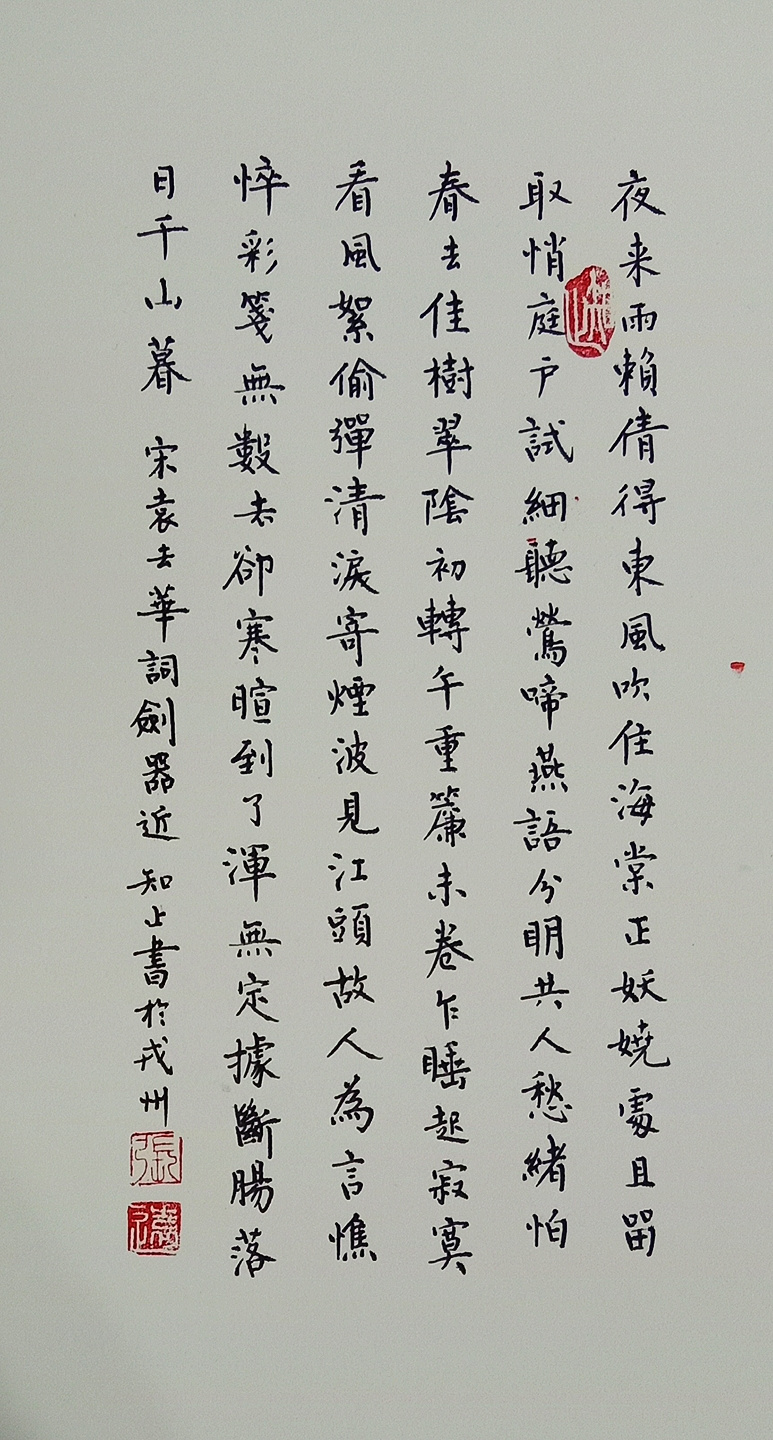 夜来雨賴倩得東風吹住海棠正妖嬈處且留
取悄庭户試細聽鶯啼燕語分明共人愁緒怕
春去佳樹翠陰初轉午重簾未卷乍睡起寂寞
看風絮偷彈清淚寄煙波見江頭故人為言憔
悴彩箋無數去卻寒暄到了渾無定據斷腸落
日千山暮 宋袁去華詞劍器近 知止書於戎州
張